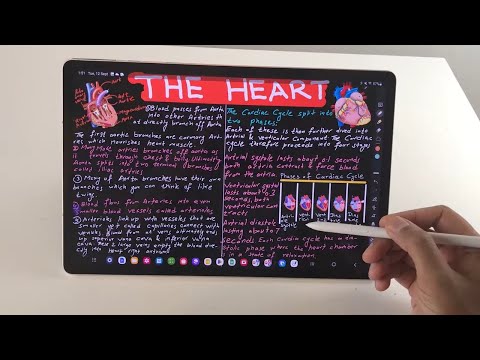 1:01 Tue, 13 Sept
THE HEART
⑤Blood passes from Aorta
into other Arteries th
at directly branch off Aorta
The first aortic branches are coronary Art-
ries which nourishes heart muscle.
Many more arteries branches off aorta as
it travels through chest & body. Ultimately
Aorta splits into two terminal branches
called iliac arteries
③ Many of Aorta branches have their own
branches which you can think of like
twigs
Blood flows from Arteries into even
smaller blood vessels called arterioles
Arterioles link up with vessels that are
smaller yet called capillaries connect with
venules. Blood from all veins ultimately ends
up superior vena cava & inferior vena
cava. These 2 large veins empty the blood dire
ctly into heart right atrium
The Cardiac Cycle split into
two phases:
Each of these is then further dived into
Atrial & ventricular component. The Cardiac
cycle therefore proceeds into four stages
Atrial systole lasts about 0.1 seconds
both atria contract & force blood
from the atria.
Ventricular systole
lasts about 0.3
seconds, both
ventricular con
tracts
Atrial diastole
lasting about 0.7
seconds
Each Cardiac Cycle has a dia-
stolic phase where the heart chamber
is in a state of relaxation.
Phases of Cardiac Cycle